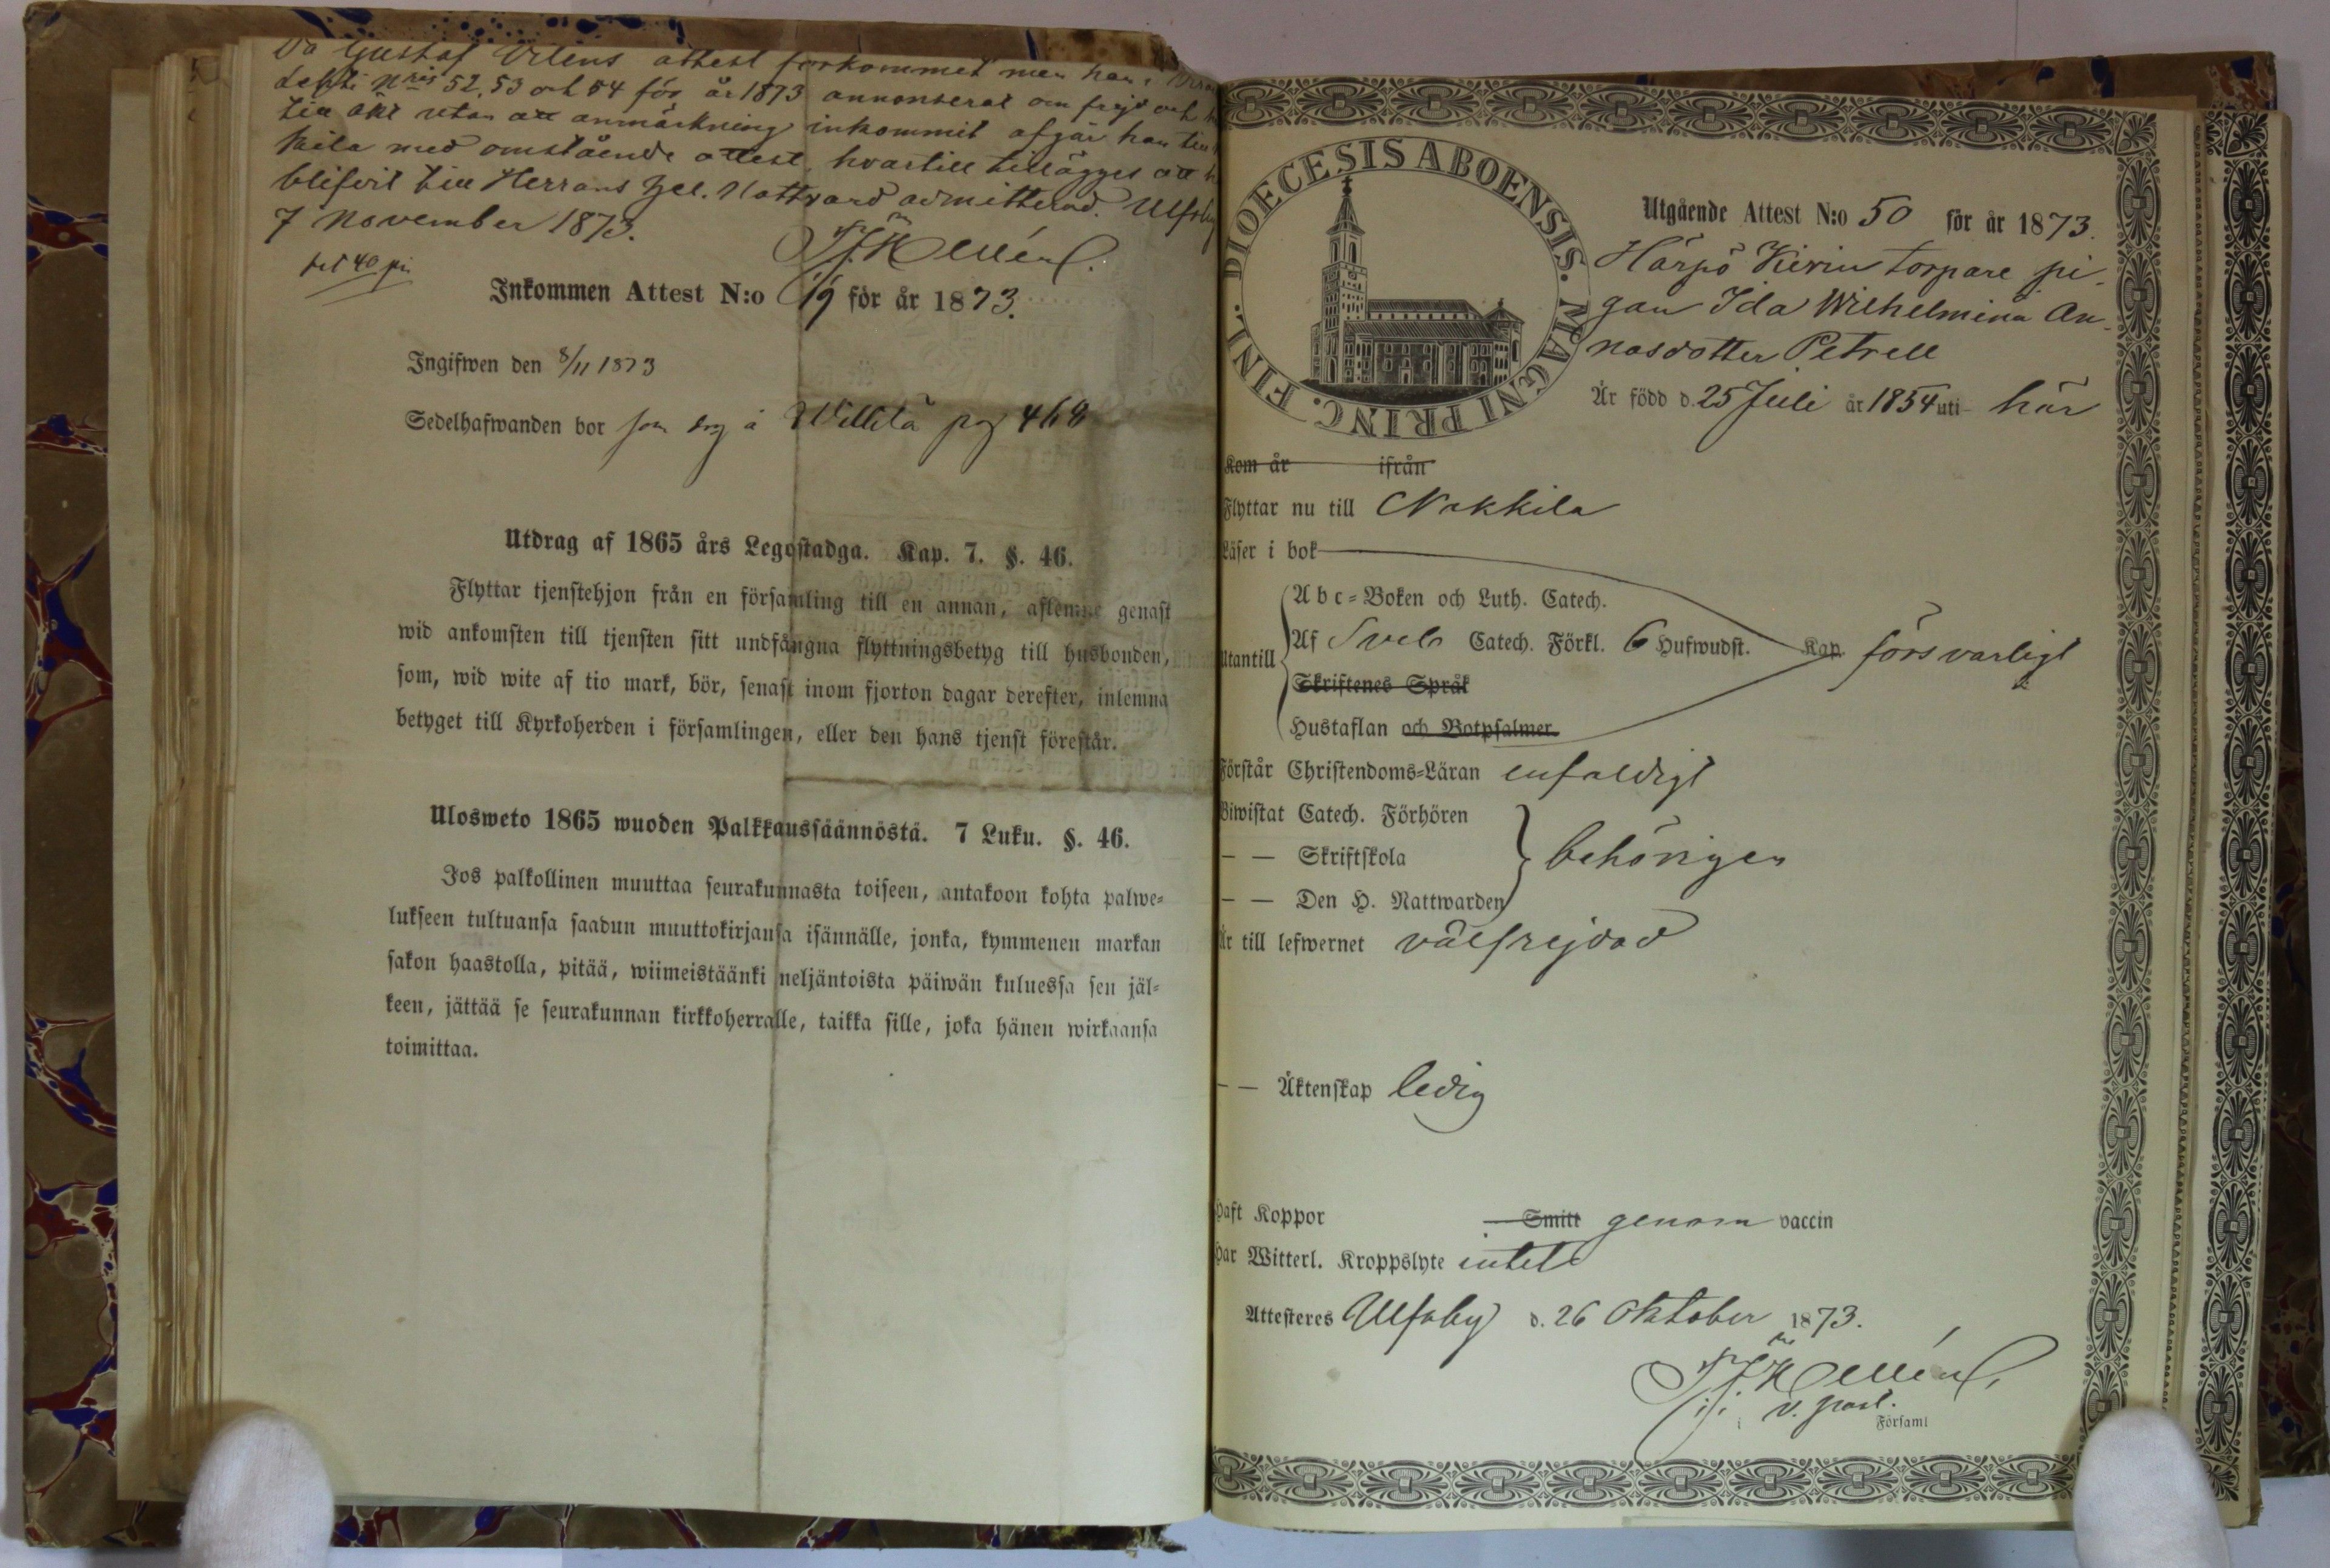 Då Gustaf Vilens attest förkommit men han i
dessti Nris 52, 53 och 54 för år 1873 annonserat om frejd och
till äkt utan att anmärkning inkommit afgår han till
kila med omstående attest, hvartill tillägges att
blifvit till Herrans Hel. Nattvard admitterad. Ulfsby
7 November 1873.
F. J. Kellén
bet 40 pi
Inkommen Attest N:o 19 för år 1873.
Ingifwen den 8/11 1873
Sedelhafwanden bor som drg å Villilä pag 468
Utdrag af 1865 års Legostadga. Kap. 7. §. 46.
Flyttar tjenstehjon från en församling till en annan, aflemne genast
wid ankomsten till tjensten sitt undfångna flyttningsbetyg till husbonden,
som, wid wite af tio mark, bör, senast inom fjorton dagar derefter, inlemna
betyget till Kyrkoherden i församlingen, eller den hans tjenst förestår.
Ulosweto 1865 wuoden Palkkaussäännöstä. 7 Luku. §. 46.
Jos palkollinen muuttaa seurakunnasta toiseen, antakoon kohta palwe-
lukseen tultuansa saadun muuttokirjansa isännälle, jonka, kymmenen markan
sakon haastolla, pitää, wiimeistäänki neljäntoista päiwän kuluessa sen jäl-
keen, jättää se seurakunnan kirkkoherralle, taikka sille, joka hänen wirkaansa
toimittaa.
DIOECESIS ABOENSIS. MAGNI PRINC. FINL.
Utgående Attest N:o 50 för år 1873.
Härpö Kivin torpare pi-
gan Ida Wilhelmina An-
nasdotter Petrell
Är född d. 25 Juli år 1854 uti här
Kom år ifrån
Flyttar nu till Nakkila
Läser i bok
Abc-Boken och Luth. Catech.
Utantill Af Sveb Catech. Förkl. 6 Hufwudst. Kap. försvarligt
Skriftenes Språk
Hustaflan och Botpsalmer.
Förstår Christendoms-Läran enfaldigt
Biwistat Catech. Förhören
— — Skriftskola behörigen
— — Den H. Nattwarden
Är till lefwernet välfrejdad
— — Äktenskap ledig
Haft Koppor Smitt genom vaccin
Har Witterl. Kroppslyte intet
Attesteres Ulfsby d. 26 Oktober 1873.
F. J. Kellén
v. past.
i Församl